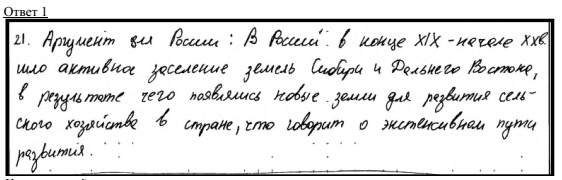 Ответ 1
21. Аргумент для России: В России в конце XIX - начале XXв.
шло активное заселение земель Сибири и Дальнего Востока,
в результате чего появлялись новые земли для развития сель-
ского хозяйства в стране, что говорит о экстенсивном пути
развития.